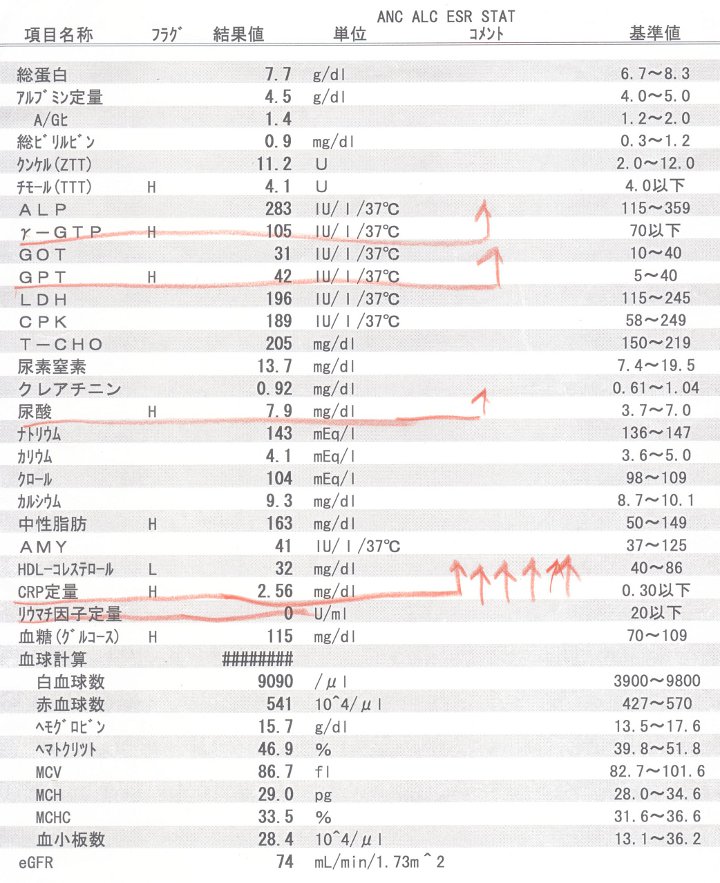 ANC ALC ESR STAT
項目名称 フラグ 結果値 単位 コメント 基準値
総蛋白 7.7 g/dl 6.7～8.3
アルブミン定量 4.5 g/dl 4.0～5.0
A/Gヒ 1.4 1.2～2.0
総ビリルビン 0.9 mg/dl 0.3～1.2
クンケル(ZTT) 11.2 U 2.0～12.0
チモール(TTT) H 4.1 U 4.0以下
ALP 283 IU/l/37℃ 115～359
γ－GTP H 105 IU/l/37℃ 70以下
GOT 31 IU/l/37℃ 10～40
GPT H 42 IU/l/37℃ 5～40
LDH 196 IU/l/37℃ 115～245
CPK 189 IU/l/37℃ 58～249
T－CHO 205 mg/dl 150～219
尿素窒素 13.7 mg/dl 7.4～19.5
クレアチニン 0.92 mg/dl 0.61～1.04
尿酸 H 7.9 mg/dl 3.7～7.0
ナトリウム 143 mEq/l 136～147
カリウム 4.1 mEq/l 3.6～5.0
クロール 104 mEq/l 98～109
カルシウム 9.3 mg/dl 8.7～10.1
中性脂肪 H 163 mg/dl 50～149
AMY 41 IU/l/37℃ 37～125
HDL-コレステロール L 32 mg/dl 40～86
CRP定量 H 2.56 mg/dl 0.30以下
リウマチ因子定量 0 U/ml 20以下
血糖(グルコース) H 115 mg/dl 70～109
血球計算 ########
白血球数 9090 /μl 3900～9800
赤血球数 541 10^4/μl 427～570
ヘモグロビン 15.7 g/dl 13.5～17.6
ヘマトクリット 46.9 % 39.8～51.8
MCV 86.7 fl 82.7～101.6
MCH 29.0 pg 28.0～34.6
MCHC 33.5 % 31.6～36.6
血小板数 28.4 10^4/μl 13.1～36.2
eGFR 74 mL/min/1.73m^2